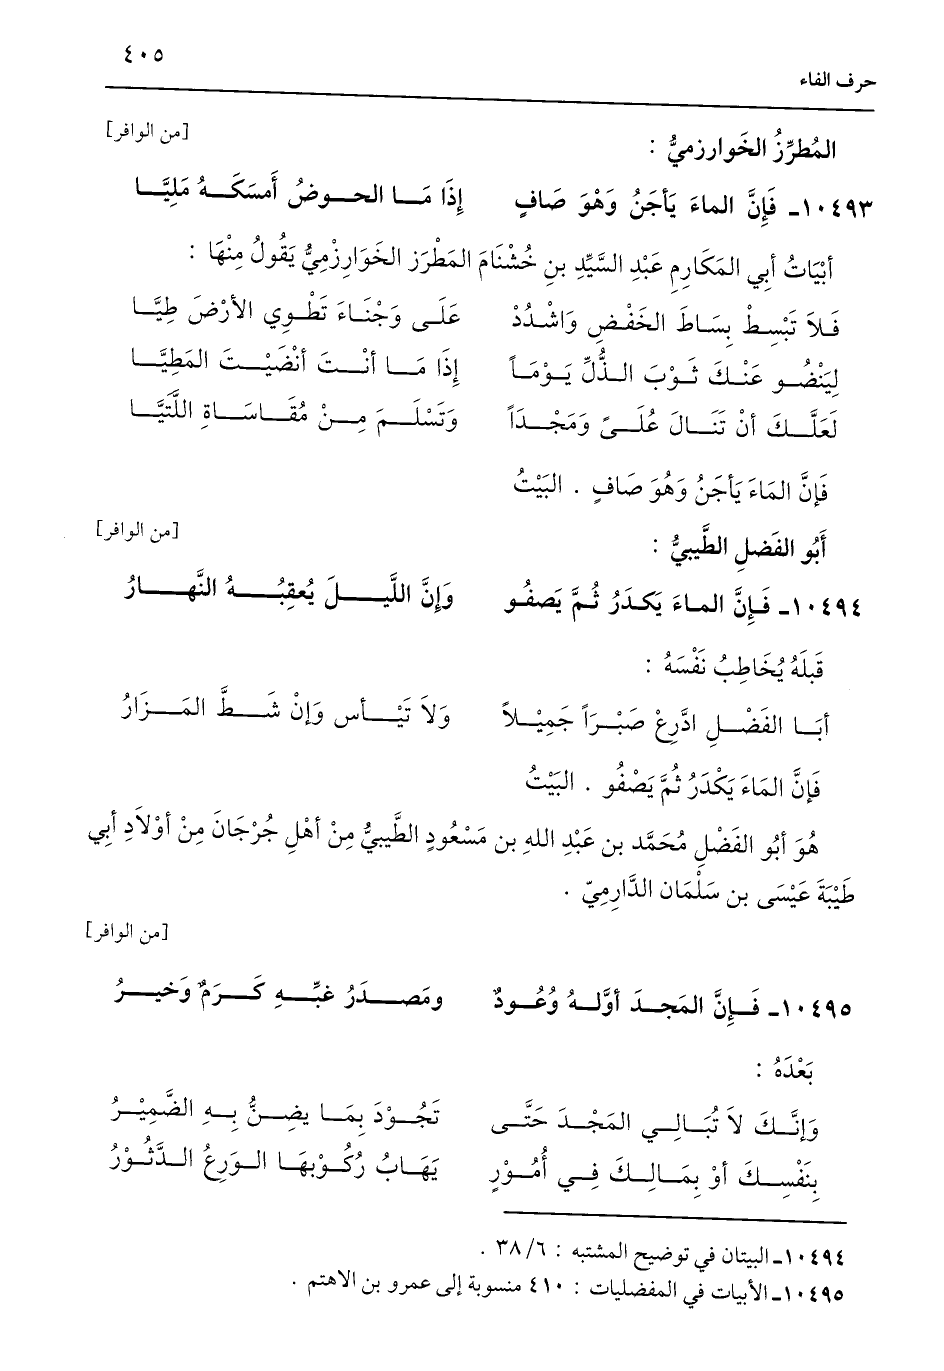 ٤٠٥
حرف الفاء
[من الوافر]
المُطرِّزُ الخَوارزميُّ :
١٠٤٩٣ـ فَإِنَّ الماءَ يَأجَنُ وَهْوَ صَافٍ إِذَا مَا الحوضُ أَمسَكَهُ مَليَّا
أبْيَاتُ أبي المَكَارِمِ عَبْدِ السَّيِّدِ بنِ خُشْنَامَ المَطْرَز الخَوَارِزْمِيُّ يَقُولُ مِنْهَا :
فَلاَ تَبْسِطْ بِسَاطَ الخَفْضِ وَاشْدُدْ عَلَى وَجْنَاءَ تَطْوِي الأَرْضَ طِيَّا
لِيَنْضُو عَنْكَ ثَوْبَ الذُّلِّ يَوْمَاً إِذَا مَا أَنْتَ أَنْضَيْتَ المَطِيَّا
لَعَلَّكَ أَنْ تَنَالَ عُلَىً وَمَجْدَاً وَتَسْلَمَ مِنْ مُقَاسَاةِ اللَّتَيَّا
فَإِنَّ المَاءَ يَأجَنُ وَهُوَ صَافٍ . البَيْتُ
[من الوافر]
أَبُو الفَضلِ الطَّيبيُّ :
١٠٤٩٤ـ فَإِنَّ الماءَ يَكدَرُ ثُمَّ يَصفُو وَإِنَّ اللَّيلَ يُعقِبُهُ النَّهارُ
قَبلَهُ يُخَاطِبُ نَفْسَهُ :
أَبَا الفَضْلِ ادَّرِعْ صَبْرَاً جَمِيْلاً وَلاَ تَيْأس وَإِنْ شَطَّ المَزَارُ
فَإِنَّ المَاءَ يَكْدَرُ ثُمَّ يَصْفُو . البَيْتُ
هُوَ أَبُو الفَضْلِ مُحَمَّد بن عَبْدِ اللهِ بن مَسْعُودٍ الطَّيبيُّ مِنْ أَهْلِ جُرْجَانَ مِنْ أَوْلاَدِ أَبِي
طَيْبَةَ عَيْسَى بن سَلْمَان الدَّارِمِيّ .
[من الوافر]
١٠٤٩٥ـ فَإِنَّ المَجدَ أوَّلهُ وُعُودٌ ومَصدَرُ غبِّهِ كَرَمٌ وَخيرُ
بَعْدَهُ :
وَإِنَّكَ لاَ تُبَالِي المَجْدَ حَتَّى تَجُوْدَ بِمَا يضِنُّ بِهِ الضَّمِيْرُ
بِنَفْسِكَ أَوْ بِمَالِكَ فِي أُمُوْرٍ يَهَابُ رُكُوْبهَا الوَرِعُ الدَّثُوْرُ
١٠٤٩٤ـ البيتان في توضيح المشتبه : ٦/ ٣٨ .
١٠٤٩٥ـ الأبيات في المفضليات : ٤١٠ منسوبة إلى عمرو بن الاهتم .